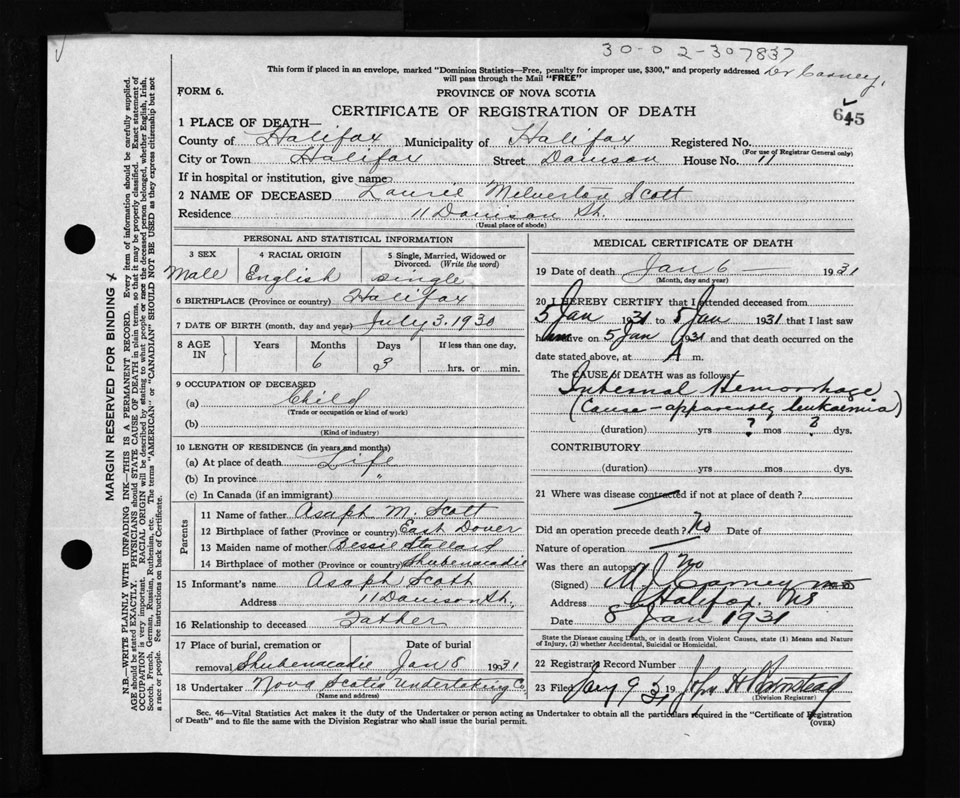 30-0 2-307837
This form if placed in an envelope, marked "Dominion Statistics—Free, penalty for improper use, $300," and properly addressed Dr Carney,
will pass through the Mail "FREE"
FORM 6.
PROVINCE OF NOVA SCOTIA
CERTIFICATE OF REGISTRATION OF DEATH
645
1 PLACE OF DEATH—
County of Halifax Municipality of Halifax Registered No.
(For use of Registrar General only)
City or Town Halifax Street Davison House No. 11
If in hospital or institution, give name
2 NAME OF DECEASED Laurie Milverton Scott
Residence 11 Davison St.
(Usual place of abode)
PERSONAL AND STATISTICAL INFORMATION
3 SEX 4 RACIAL ORIGIN 5 Single, Married, Widowed or Divorced. (Write the word)
Male English Single
6 BIRTHPLACE (Province or country) Halifax
7 DATE OF BIRTH (month, day and year) July 3. 1930
8 AGE IN Years Months Days If less than one day,
6 3 hrs. or min.
9 OCCUPATION OF DECEASED
(a) Child
(Trade or occupation or kind of work)
(b)
(Kind of industry)
10 LENGTH OF RESIDENCE (in years and months)
(a) At place of death Life
(b) In province "
(c) In Canada (if an immigrant)
Parents
11 Name of father Asaph M. Scott
12 Birthplace of father (Province or country) East Dover
13 Maiden name of mother Bessie Stallard
14 Birthplace of mother (Province or country) Shubenacadie
15 Informant's name Asaph Scott
Address 11 Davison St,
16 Relationship to deceased Father
17 Place of burial, cremation or removal Shubenacadie Date of burial Jan 8 1931
18 Undertaker Nova Scotia Undertaking Co.
(Name and address)
MEDICAL CERTIFICATE OF DEATH
19 Date of death Jan 6 — 1931
(Month, day and year)
20 I HEREBY CERTIFY that I attended deceased from
5 Jan 1931 to 5 Jan 1931 that I last saw
him alive on 5 Jan 1931 and that death occurred on the
date stated above, at A m.
The CAUSE OF DEATH was as follows:
Internal Hemorrhage
(Cause - apparently leukaemia)
(duration) yrs ? mos ? dys.
CONTRIBUTORY
(duration) yrs mos dys.
21 Where was disease contracted if not at place of death?
Did an operation precede death? No Date of
Nature of operation
Was there an autopsy No
(Signed) M J Carney MD
Address Halifax, NS
Date 8 Jan 1931
State the Disease causing Death, or in death from Violent Causes, state (1) Means and Nature of Injury, (2) whether Accidental, Suicidal or Homicidal.
22 Registrars Record Number
23 Filed Jany 9 31 19 John H Barnstead
(Division Registrar)
Sec. 46—Vital Statistics Act makes it the duty of the Undertaker or person acting as Undertaker to obtain all the particulars required in the "Certificate of Registration
of Death" and to file the same with the Division Registrar who shall issue the burial permit.
(OVER)
MARGIN RESERVED FOR BINDING
N.B.—WRITE PLAINLY WITH UNFADING INK—THIS IS A PERMANENT RECORD. Every item of information should be carefully supplied.
AGE should be stated EXACTLY. PHYSICIANS should STATE CAUSE OF DEATH in plain terms, so that it may be properly classified. Exact statement of
OCCUPATION is very important. RACIAL ORIGIN will be described by stating to what people or race the deceased person belonged, whether English, Irish,
Scotch, French, German, Russian, Ruthenian, etc. The terms "AMERICAN" or "CANADIAN" SHOULD NOT BE USED as they express citizenship but not
a race or people. See instructions on back of Certificate.